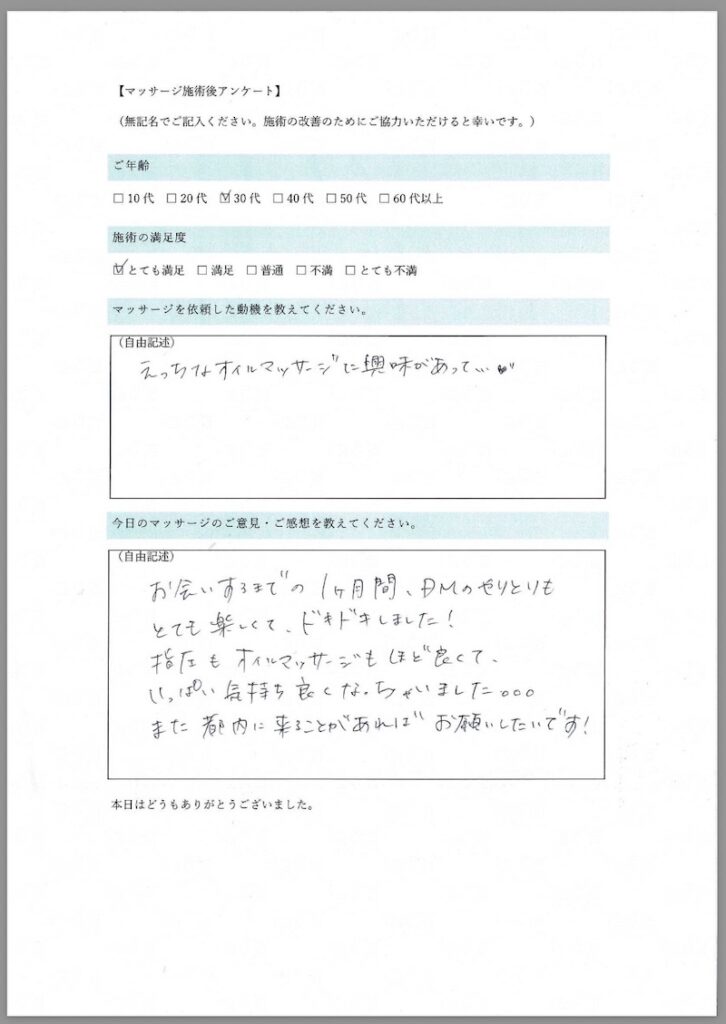 【マッサージ施術後アンケート】
（無記名でご記入ください。施術の改善のためにご協力いただけると幸いです。）
ご年齢
□10代 □20代 ☑30代 □40代 □50代 □60代以上
施術の満足度
☑とても満足 □満足 □普通 □不満 □とても不満
マッサージを依頼した動機を教えてください。
（自由記述）
えっちなオイルマッサージに興味があって…♥
今日のマッサージのご意見・ご感想を教えてください。
（自由記述）
お会いするまでの1ヶ月間、DMのやりとりも
とても楽しくて、ドキドキしました！
指圧もオイルマッサージもほど良くて、
いっぱい気持ち良くなっちゃいました。。。
また都内に来ることがあればお願いしたいです！
本日はどうもありがとうございました。